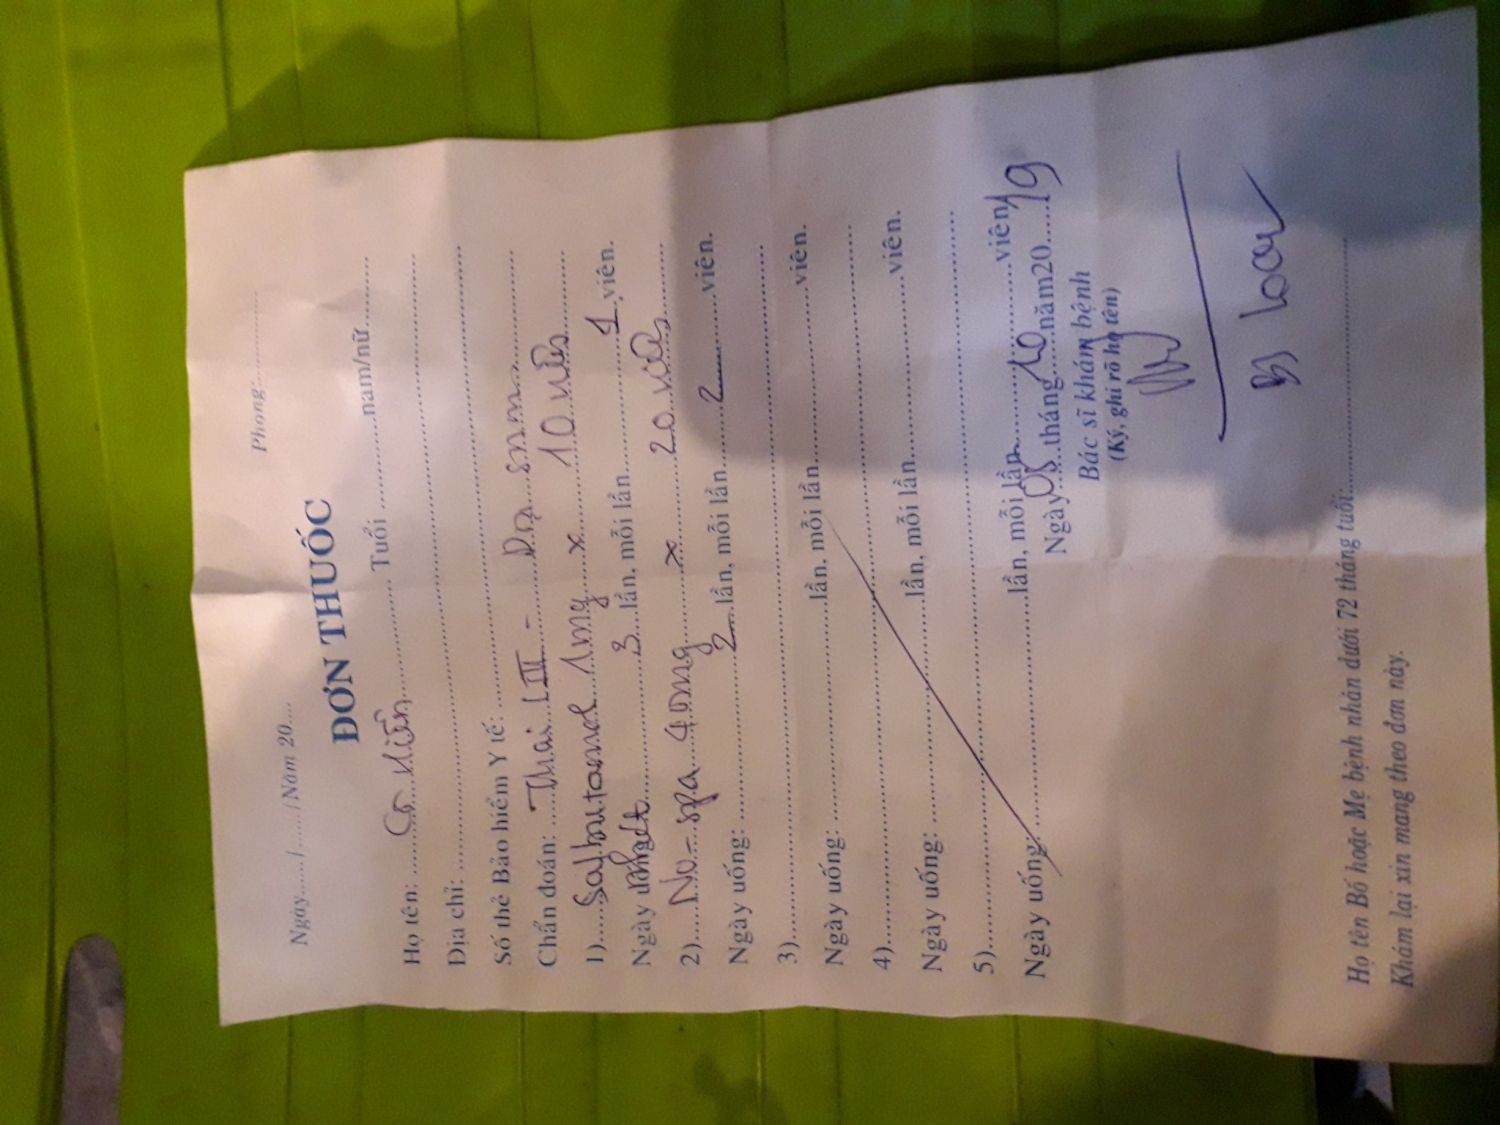 Ngày....../....../Năm 20.... Phòng:............
ĐƠN THUỐC
Họ tên: ........................ Tuổi ............nam/nữ............
Địa chỉ: ............................................................
Số thẻ Bảo hiểm Y tế: ............................................
Chẩn đoán: ....Thai LIII - Dọa
1).....Salbutamol 1mg x 10 viên
Ngày 3 lần, mỗi lần 1 viên.
2).....No-spa 40mg x 20 viên
Ngày uống: 2 lần, mỗi lần 2 viên.
3)............................................................
Ngày uống: ....................lần, mỗi lần....................viên.
4)............................................................
Ngày uống: ....................lần, mỗi lần....................viên.
5)............................................................
Ngày uống: ....................lần, mỗi lần....................viên.
Ngày 05 tháng 10 năm20 19
Bác sĩ khám bệnh
(Ký, ghi rõ họ tên)
Loan
Họ tên Bố hoặc Mẹ bệnh nhân dưới 72 tháng tuổi:....................
Khám lại xin mang theo đơn này.